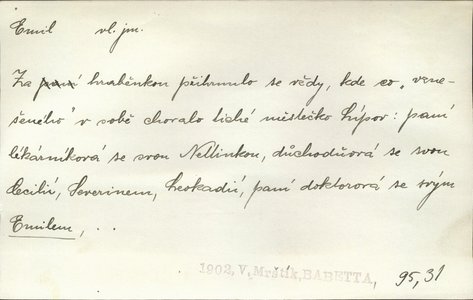 Emil vl. jm.
Za paní hraběnkou přihrnulo se vždy, kde co „vzne-
šeného" v sobě chovalo tiché městečko Lípov: paní
lékárníková se svou Nellinkou, důchodňová se svou
Cecilií, Severinem, Leokadií, paní doktorová se svým
Emilem, . .
1902, V. Mrštík, BABETTA, 95, 31